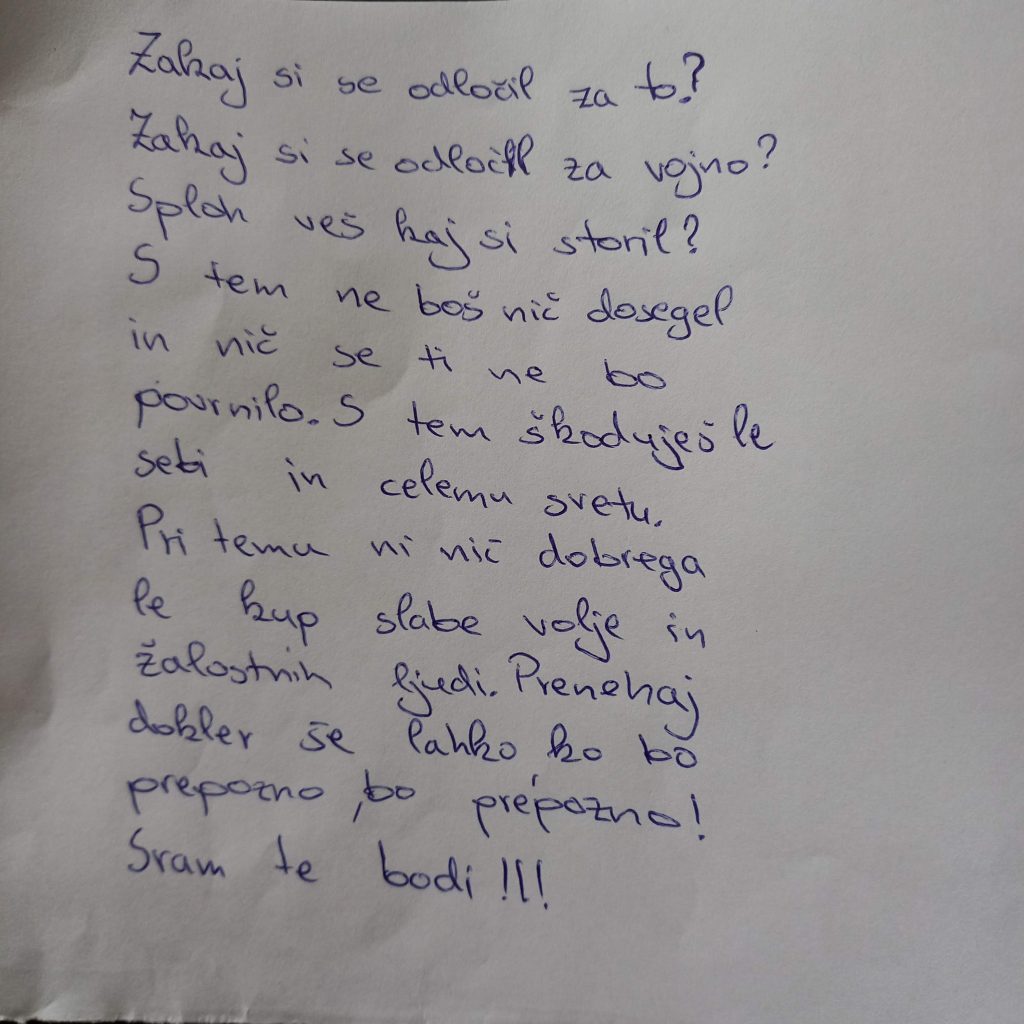 Zakaj si se odločil za to?
Zakaj si se odločil za vojno?
Sploh veš kaj si storil?
S tem ne boš nič dosegel
in nič se ti ne bo
povrnilo. S tem škoduješ le
sebi in celemu svetu.
Pri temu ni nič dobrega
le kup slabe volje in
žalostnih ljudi. Prenehaj
dokler še lahko, ko bo
prepozno, bo prepozno!
Sram te bodi!!!